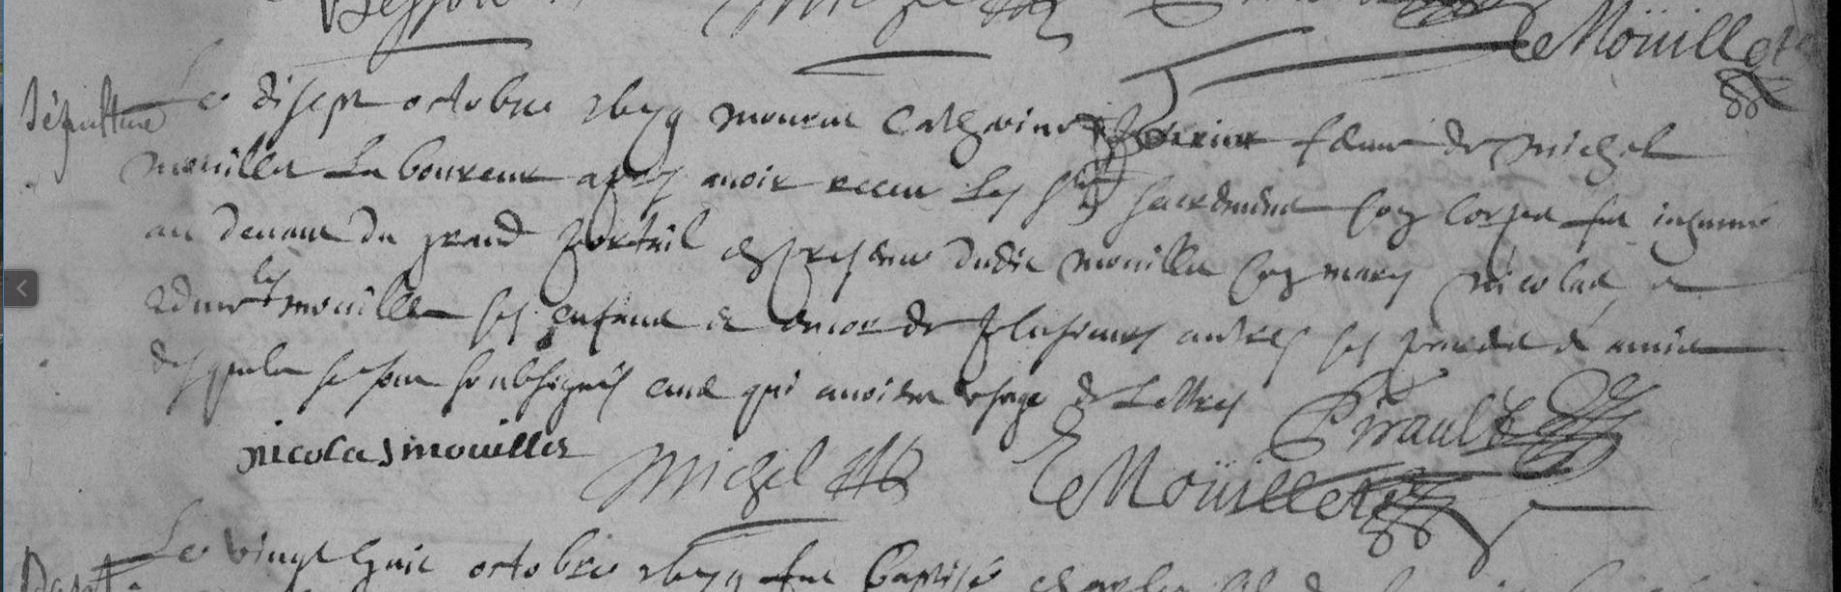 Michel
Le Moüillet
Sépulture
Le disept octobre mourut Catherine femme de Michel
Mouillet Laboureur apres avoir receu les sts sacrements son corps fut inhumé
au devant du grand portail es presence dudit Mouillet son mary Nicolas et
les Mouillet ses enfans et encor de plusieurs autres ses parents et amis
desquels se sont soubsignés ceux qui avoient usage de Lettres
Pirault
nicolas mouilles
Michel
Le Moüillet
Le vingt huit octobre fut baptisé
Bapt.